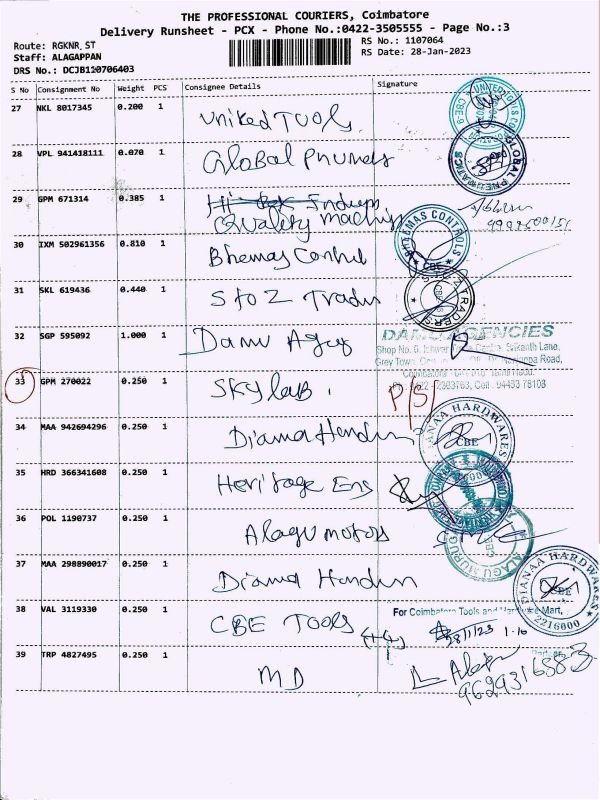 THE PROFESSIONAL COURIERS, Coimbatore
Delivery Runsheet - PCX - Phone No.:0422-3505555 - Page No.:3
Route: RGKNR_ST
RS No.: 1107064
Staff: ALAGAPPAN
RS Date: 28-Jan-2023
DRS No.: DCJB110706403
S No Consignment No Weight PCS Consignee Details Signature
27 NKL 8017345 0.200 1 United Tools
28 VPL 941418111 0.070 1 Global Pnumes
GLOBAL PNEUMATICS
29 GPM 671314 0.385 1
Quality machin
30 IXM 502961356 0.810 1 Bhemas Control
BHEEMAS CONTROLS
CBE
31 SKL 619436 0.440 1 S to Z Trades
S TO Z TRADERS
32 SGP 595092 1.000 1 Damu Agcy
DAMU AGENCIES
Shop No. 6, Srikanth Lane,
Grey Town, Road,
Coimbatore
33 GPM 270022 0.250 1 Skylab P/S/
34 MAA 942694296 0.250 1 Diana Hardin
DIANAA HARDWARES
CBE
35 HRD 366341608 0.250 1 Heritage Ens
36 POL 1190737 0.250 1 Alagu motors
ALAGU MURUGAN
37 MAA 298890017 0.250 1 Diana Hardin
DIANAA HARDWARES
CBE
2216000
38 VAL 3119330 0.250 1 CBE TOOLS
For Coimbatore Tools and Hardware Mart,
28/1/23 1.16
39 TRP 4827495 0.250 1 MD
9629316583